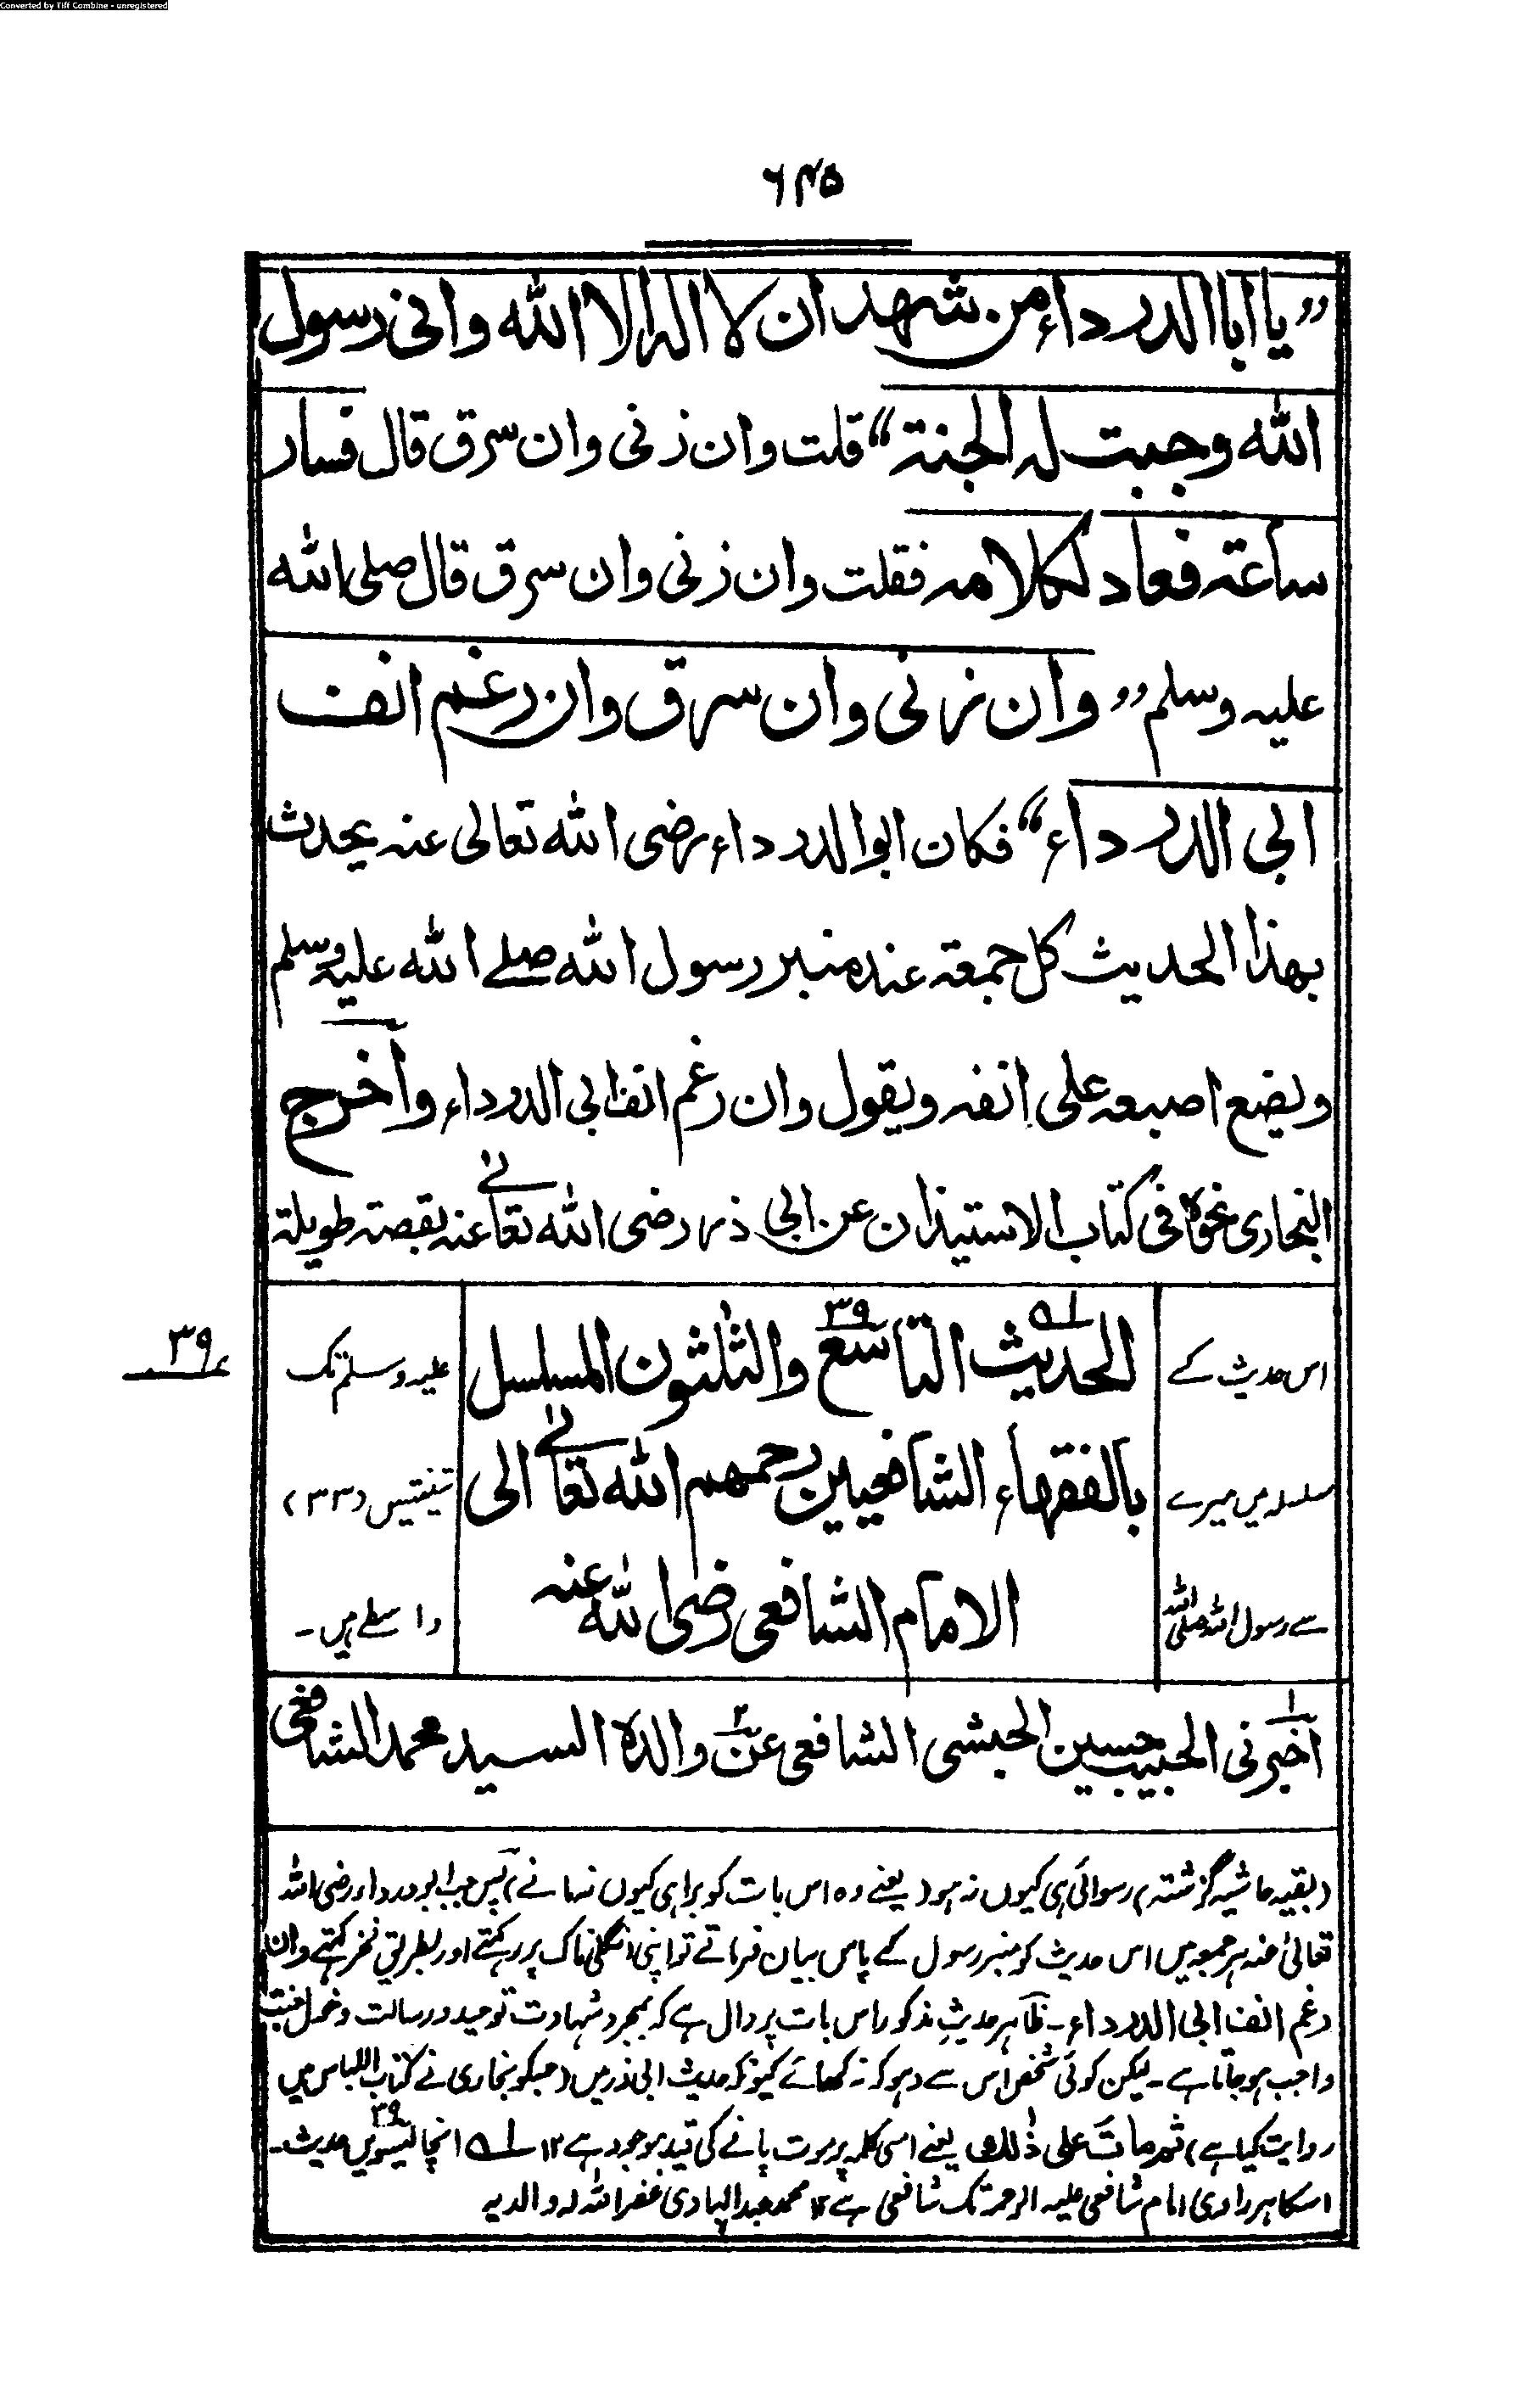 Converted by Tiff Combine - unregistered
۶۴۵
”یا ابا الدرداء من شهد ان لا اله الا الله وانی رسول
الله وجبت له الجنة“ قلت وان زنی وان سرق قال فسار
ساعة فعاد لکلامه فقلت وان زنی وان سرق قال صلی الله
علیه وسلم ”وان زنی وان سرق وان رغم انف
ابی الدرداء“ فکان ابوالدرداء رضی الله تعالی عنه یحدث
بهذا الحدیث کل جمعة عند منبر رسول الله صلے الله علیه وسلم
ویضع اصبعه علی انفه ویقول وان رغم انف ابی الدرداء وأخرج
البخاری نحوه فی کتاب الاستیذان عن ابی ذر رضی الله تعالے عنه بقصة طویلة
۳۹
الحدیث التاسع والثلثون المسلسل
بالفقهاء الشافعیین رحمهم الله تعالے الی
الامام الشافعی رضی الله عنه
۳۹
اس حدیث کے
سلسلہ میں میرے
سے رسول اللہ صلی اللہ
علیہ وسلم تک
تینتیس (۳۳)
واسطے ہیں۔
أخبرنی الحبیب حسین الحبشی الشافعی عن والده السید محمد الشافعی
(بقیہ حاشیہ گزشتہ) رسوائی ہی کیوں نہ ہو (یعنے وہ اس بات کو برا ہی کیوں نہ مانے) پس جب ابودرداء رضی اللہ
تعالیٰ عنہ ہر جمعہ میں اس حدیث کو منبر رسول کے پاس بیان فرماتے تو اپنی انگلی ناک پر رکھتے اور بطریق فخر کہتے وان
رغم انف ابی الدرداء۔ ظاہر حدیثِ مذکور اس بات پر دال ہے کہ بمجرد شہادت توحید ورسالت دخول جنت
واجب ہوجاتا ہے۔ لیکن کوئی شخص اس سے دہوکہ نہ کھائے کیونکہ حدیث ابی ذر میں (جسکو بخاری نے کتاب اللباس میں
روایت کیا ہے) ثم مات علی ذٰلک یعنے اسی کلمہ پر موت پانے کی قید موجود ہے ۱۲ ۳۹ انچالیسویں حدیث۔
اسکا ہر راوی امام شافعی علیہ الرحمۃ تک شافعی ہے ۱۲ محمد عبدالہادی غفر اللہ لہ و الدیہ